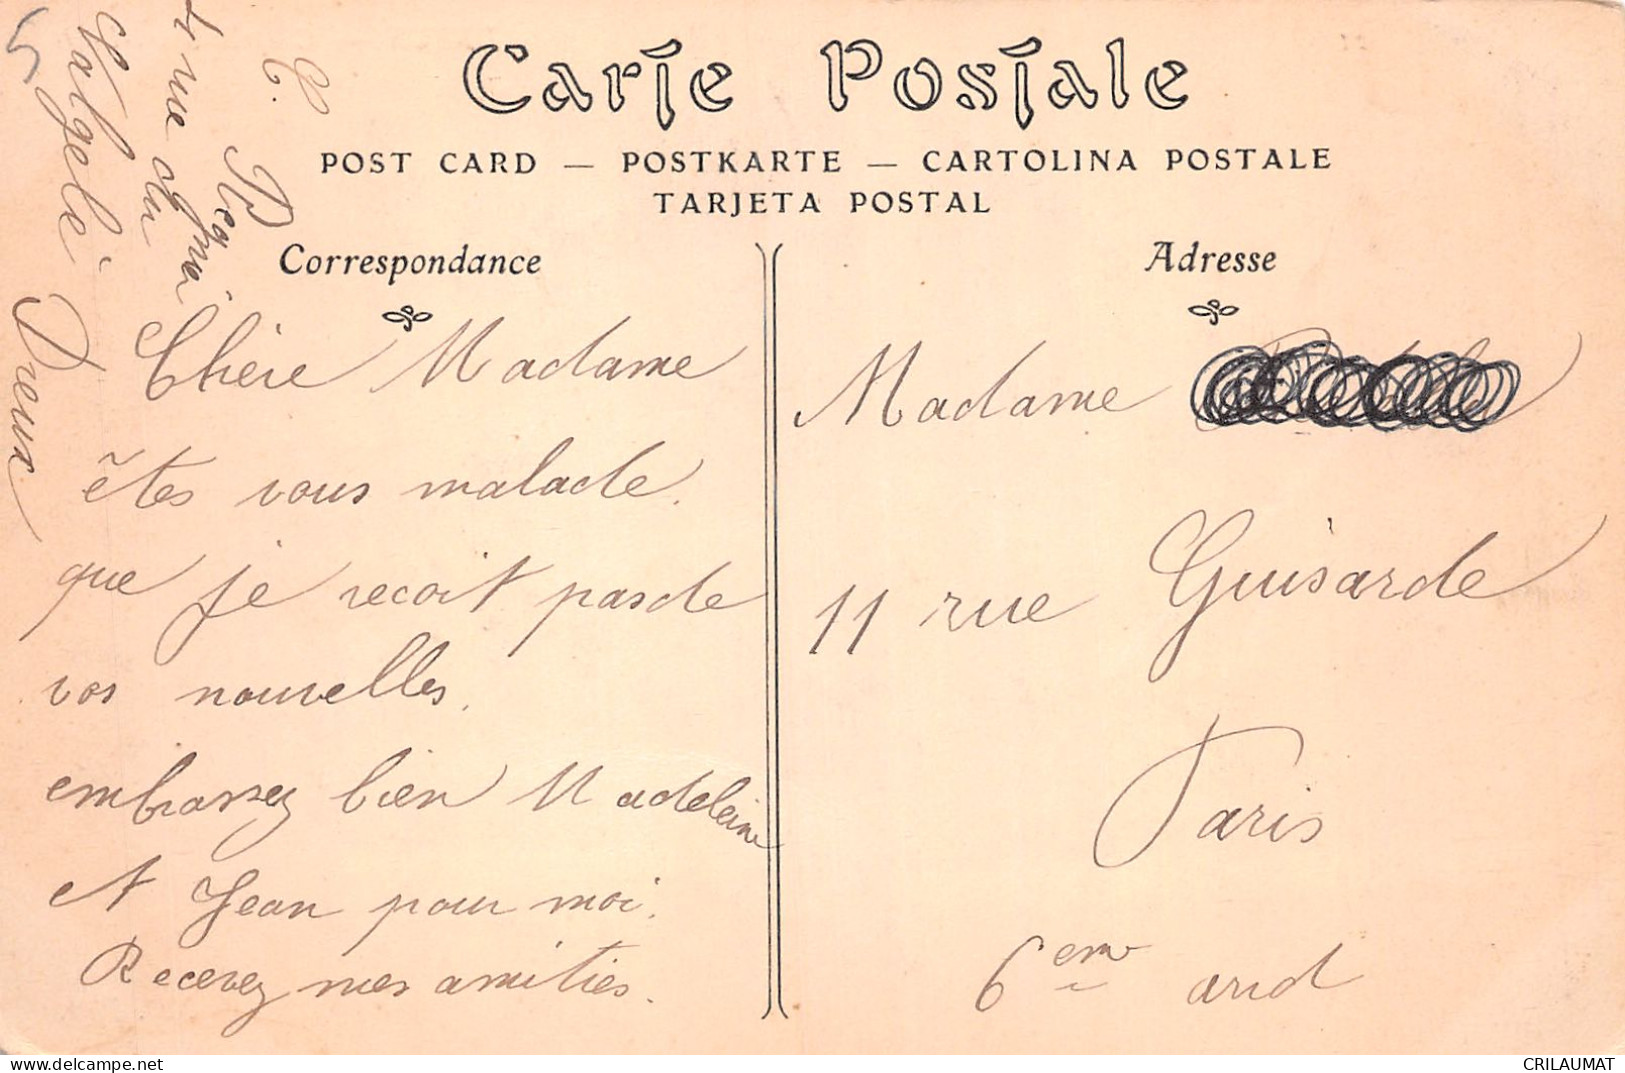 Carte Postale
POST CARD — POSTKARTE — CARTOLINA POSTALE
TARJETA POSTAL
Correspondance
Adresse
Chère Madame
êtes vous malade.
que je recoit pas de
vos nouvelles.
embrassez bien Madeleine
et Jean pour moi.
Recevez mes amitiés.
rue du
Val gelé
Dreux
Madame
11 rue Guisarde
Paris
6eme arrd
www.delcampe.net
CRILAUMAT